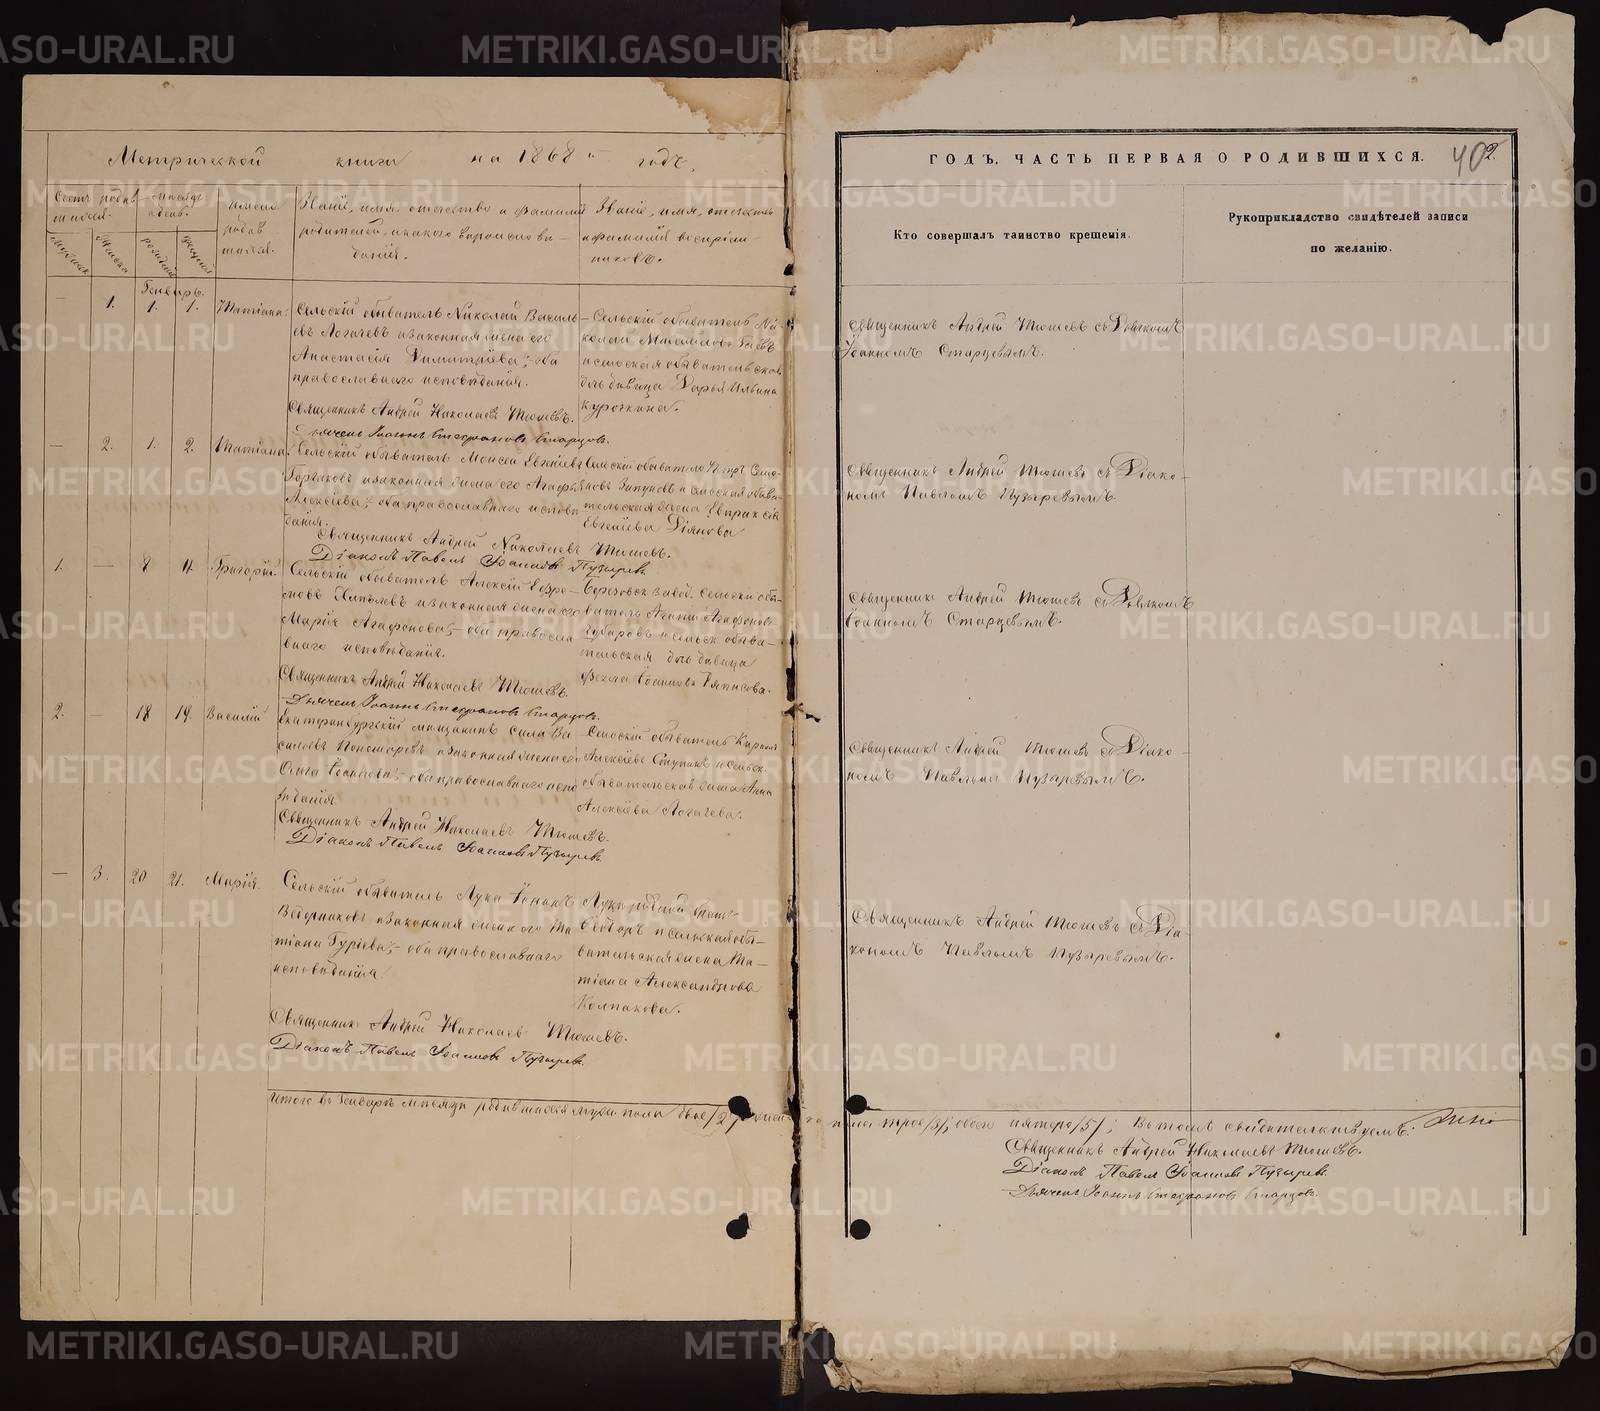 Метрической книги на 1868 й годъ.
ГОДЪ, ЧАСТЬ ПЕРВАЯ О РОДИВШИХСЯ.
402.
Счетъ родив
шихся.
Мѣсяцъ
и день.
Имена
родив
шихся.
Званіе, имя, отчество и фамилія
родителей, и какого вѣроисповѣ-
данія.
Званіе, имя, отчество
и фамилія воспріем
никовъ.
Кто совершалъ таинство крещенія.
Рукоприкладство свидѣтелей записи
по желанію.
Генварь.
1. 1. 1. Татіана.
Сельскій обыватель Николай Василь
евъ Логачевъ и законная жена его
Анастасія Димитріева; оба
православнаго исповѣданія.
Священникъ Андрей Николаевъ Тюшевъ.
Дьячекъ Іоаннъ Стефановъ Старцовъ.
Сельскій обыватель Ни-
колай
и сельская обывательская
дочь девица Дарья Ильина
Курочкина.
Священникъ Андрей Тюшевъ съ Дьячкомъ
Іоанномъ Старцевымъ.
2. 1. 2. Татіана.
Сельскій обыватель Моисей Евгеніевъ
и законная жена его Агафья
Алексѣева; оба православнаго исповѣ
данія.
Священникъ Андрей Николаевъ Тюшевъ.
Діаконъ Павелъ Іоанновъ Пузыревъ.
Сельскій обыватель Петръ Семе-
новъ Зипуновъ и сельская обыва-
тельская жена Евпраксія
Евгеніева Діянова
Священникъ Андрей Тюшевъ съ Діако-
номъ Павломъ Пузыревымъ.
1. — 8 11. Григорій.
Сельскій обыватель Алексѣй Ефре-
мовъ и законная жена его
Марія Агафонова; оба правосла
внаго исповѣданія.
Священникъ Андрей Николаевъ Тюшевъ.
Дьячекъ Іоаннъ Стефановъ Старцовъ.
Березовск. завод. сельскій обы-
ватель Агафоновъ
Губаровъ и сельск. обыва-
тельская дочь девица
Фекла Іоаннова
Священникъ Андрей Тюшевъ съ Дьячкомъ
Іоанномъ Старцевымъ.
2. — 18 19. Василій
Екатеринбургскій мѣщанинъ Сила Ва
сильевъ Пономаревъ и законная жена его
Ольга Іоаннова; оба православнаго испо
вѣданія
Священникъ Андрей Николаевъ Тюшевъ.
Діаконъ Павелъ Іоанновъ Пузыревъ.
Сельскій обыватель Кириллъ
Алексѣевъ Ступинъ и сельск.
обывательская жена Анна
Алексѣева Логачева.
Священникъ Андрей Тюшевъ съ Діако-
номъ Павломъ Пузыревымъ.
— 3. 20 21. Марія.
Сельскій обыватель Лука Іоаннъ
Ведерниковъ и законная жена его Та
тіана Гуріева; оба православнаго
исповѣданія.
Священникъ Андрей Николаевъ Тюшевъ.
Діаконъ Павелъ Іоанновъ Пузыревъ.
и сельская обы-
вательская жена Та-
тіана Александрова
Колпакова.
Священникъ Андрей Тюшевъ съ Діа-
кономъ Павломъ Пузыревымъ.
Итого въ Генварѣ мѣсяцѣ родившихся муж. пола двое /2/ женскаго пола трое /3/; обоего пятеро /5/; Въ томъ свидѣтельствуемъ:
Священникъ Андрей Николаевъ Тюшевъ.
Діаконъ Павелъ Іоанновъ Пузыревъ.
Дьячекъ Іоаннъ Стефановъ Старцовъ.
METRIKI.GASO-URAL.RU